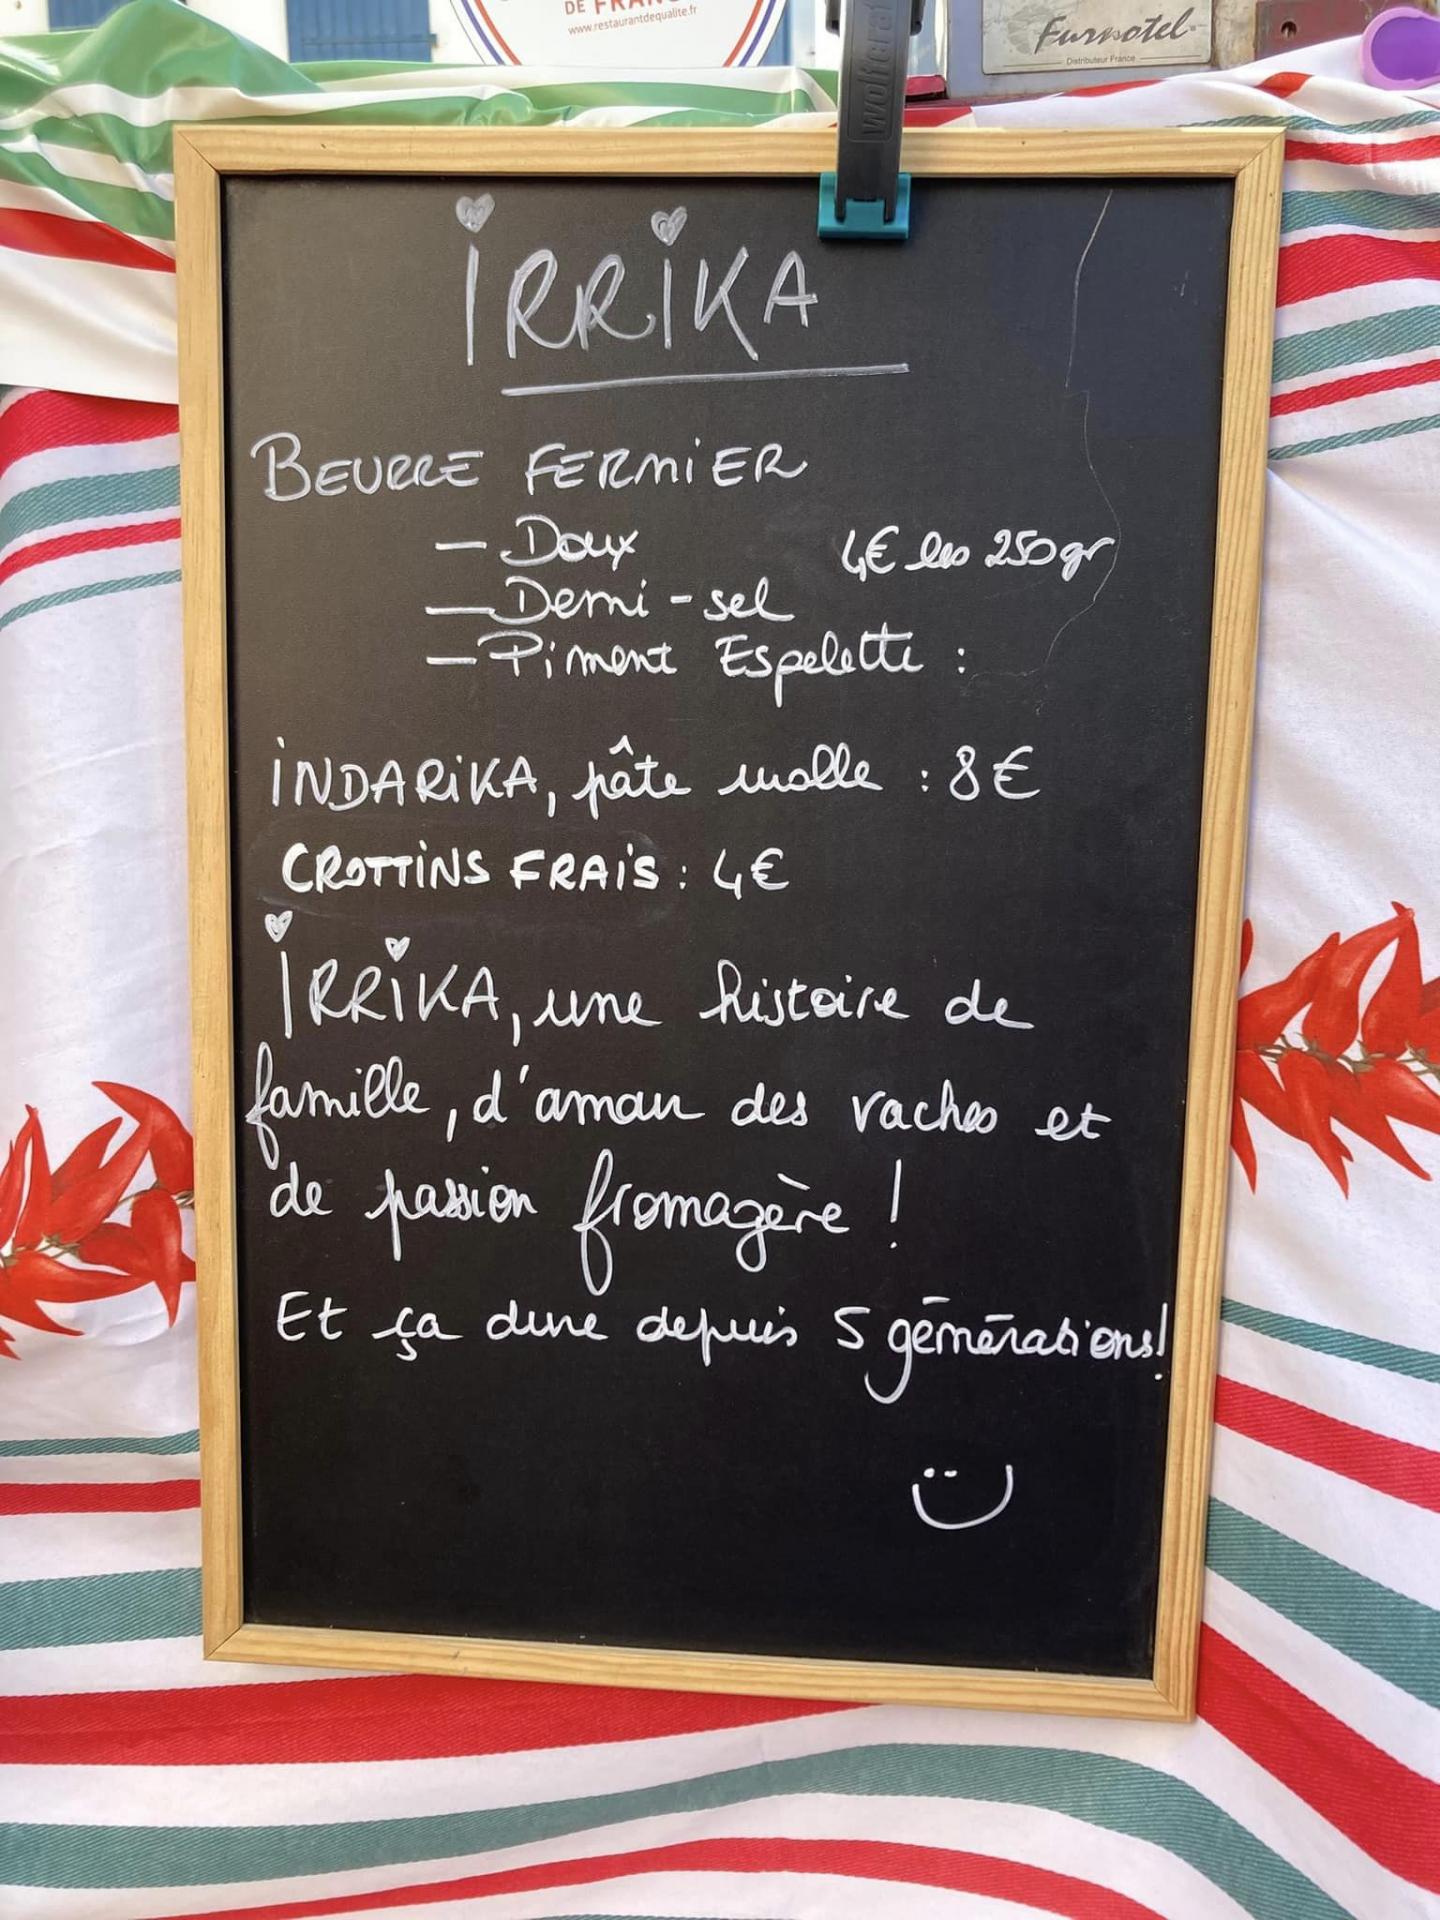 DE FRANC
www.restaurantdequalite.fr
wolfcraft
Furnotel
Distributeur France
IRRIKA
BEURRE FERMIER
- Doux 4€ les 250gr
- Demi-sel
- Piment Espelette :
INDARIKA, pâte molle : 8€
CROTTINS FRAIS : 4€
IRRIKA, une histoire de
famille, d'amour des vaches et
de passion fromagère !
Et ça dure depuis 5 générations!